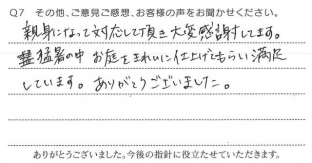 Q7 その他、ご意見ご感想、お客様の声をお聞かせください。
親身になって対応して頂き大変感謝してます。
猛暑の中 お庭をきれいに仕上げてもらい満足
しています。ありがとうございました。
ありがとうございました。今後の指針に役立たせていただきます。